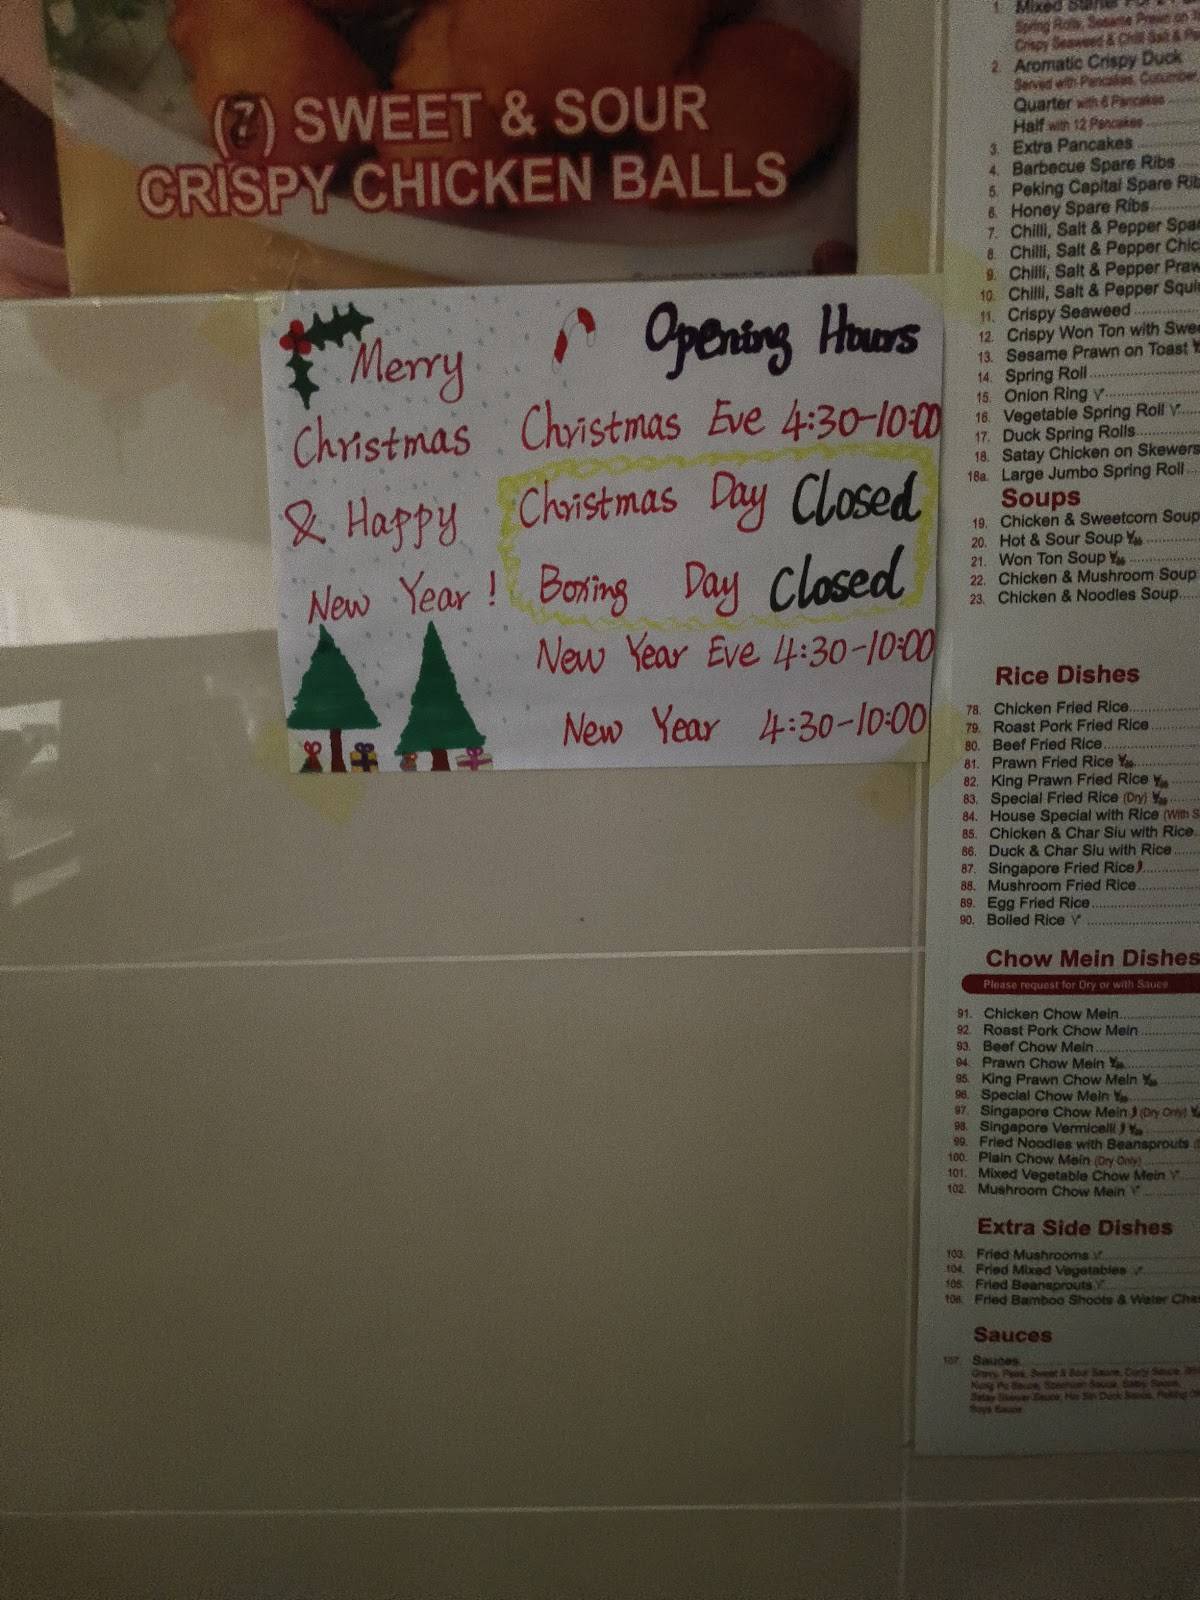 (7) SWEET & SOUR
CRISPY CHICKEN BALLS
Merry
Christmas
& Happy
New Year!
Opening Hours
Christmas Eve 4:30-10:00
Christmas Day Closed
Boxing Day Closed
New Year Eve 4:30-10:00
New Year 4:30-10:00
1. Mixed Starter
Spring Rolls, Sesame Prawn on
Crispy Seaweed & Chilli Salt &
2. Aromatic Crispy Duck
Served with Pancakes, Cucumber
Quarter with 6 Pancakes
Half with 12 Pancakes
3. Extra Pancakes
4. Barbecue Spare Ribs
5. Peking Capital Spare Rib
6. Honey Spare Ribs
7. Chilli, Salt & Pepper Spa
8. Chilli, Salt & Pepper Chic
9. Chilli, Salt & Pepper Praw
10. Chilli, Salt & Pepper Squi
11. Crispy Seaweed
12. Crispy Won Ton with Swe
13. Sesame Prawn on Toast
14. Spring Roll
15. Onion Ring
16. Vegetable Spring Roll
17. Duck Spring Rolls
18. Satay Chicken on Skewers
18a. Large Jumbo Spring Roll
Soups
19. Chicken & Sweetcorn Soup
20. Hot & Sour Soup
21. Won Ton Soup
22. Chicken & Mushroom Soup
23. Chicken & Noodles Soup
Rice Dishes
78. Chicken Fried Rice
79. Roast Pork Fried Rice
80. Beef Fried Rice
81. Prawn Fried Rice
82. King Prawn Fried Rice
83. Special Fried Rice (Dry)
84. House Special with Rice (With S
85. Chicken & Char Siu with Rice
86. Duck & Char Siu with Rice
87. Singapore Fried Rice
88. Mushroom Fried Rice
89. Egg Fried Rice
90. Boiled Rice
Chow Mein Dishes
Please request for Dry or with Sauce
91. Chicken Chow Mein
92. Roast Pork Chow Mein
93. Beef Chow Mein
94. Prawn Chow Mein
95. King Prawn Chow Mein
96. Special Chow Mein
97. Singapore Chow Mein (Dry Only)
98. Singapore Vermicelli
99. Fried Noodles with Beansprouts
100. Plain Chow Mein (Dry Only)
101. Mixed Vegetable Chow Mein
102. Mushroom Chow Mein
Extra Side Dishes
103. Fried Mushrooms
104. Fried Mixed Vegetables
105. Fried Beansprouts
106. Fried Bamboo Shoots & Water Che
Sauces
107. Sauces
Gravy, Peas, Sweet & Sour Sauce, Curry Sauce,
Kung Po Sauce, Szechuan Sauce, Satay Sauce,
Satay Skewer Sauce, Hoi Sin Duck Sauce, Peking
Soya Sauce